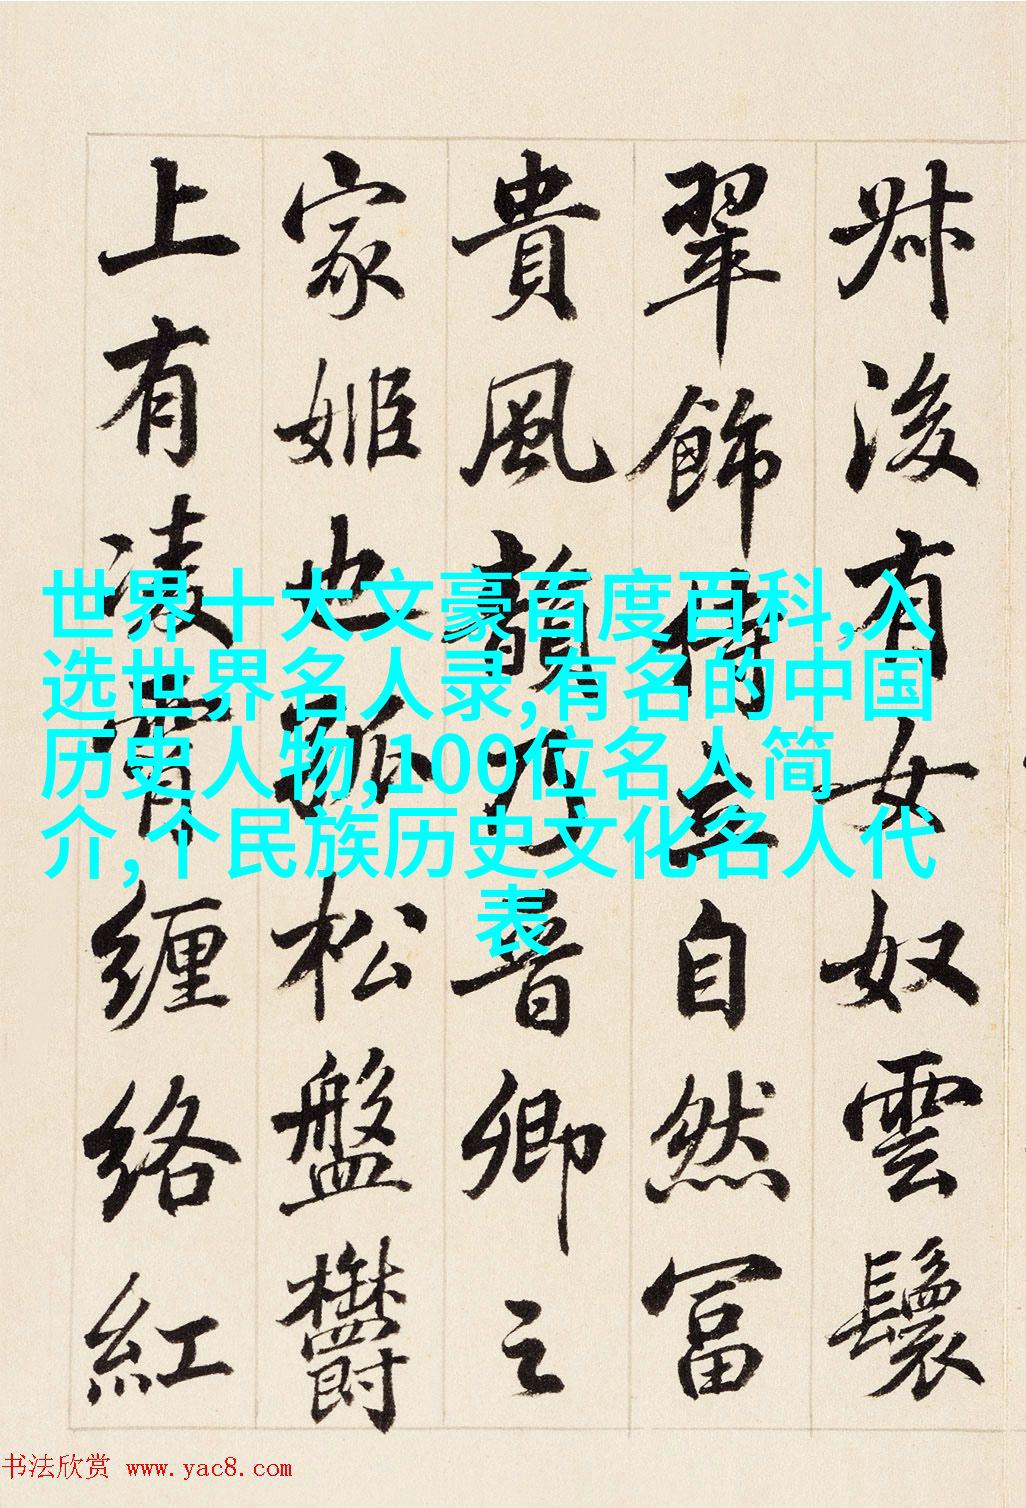 叔後有女奴雲鬟
翠飾侍立自然富
貴風韻乃晉卿之
家姬也孤松盤欝
上有凌霄纏絡紅
世界十大文豪百度百科,入
选世界名人录,有名的中国
历史人物,100位名人简
介,个民族历史文化名人代
表
书法欣赏 www.yac8.com